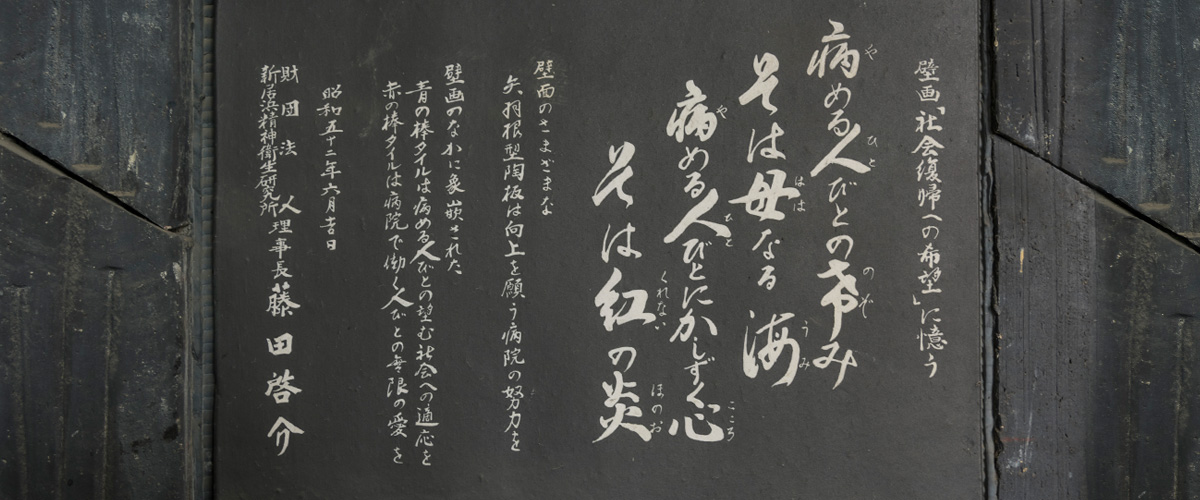 壁画「社会復帰への希望」に憶う
病める人びとの希み
そは母なる海
病める人びとにかしずく心
そは紅の炎
壁面のさまざまな
矢羽根型陶板は向上を願う病院の努力を
壁画のなかに象嵌された
青の棒タイルは病める人びとの望む社会への適応を
赤の棒タイルは病院で働く人びとの無限の愛を
昭和五十二年六月吉日
財団法人
新居浜精神衛生研究所
理事長 藤田啓介